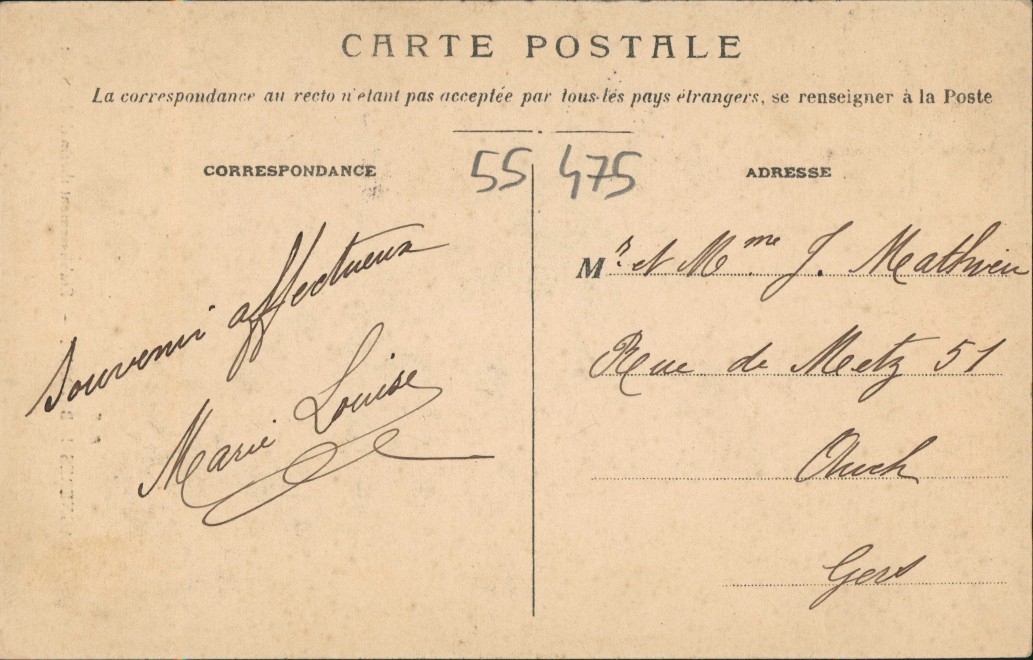 CARTE POSTALE
La correspondance au recto n'étant pas acceptée par tous les pays étrangers, se renseigner à la Poste
55 475
CORRESPONDANCE
Souvenir affectueux
Marie Louise
ADRESSE
Mrs et Mme J. Mathieu
Rue de Metz 51
Auch
Gers